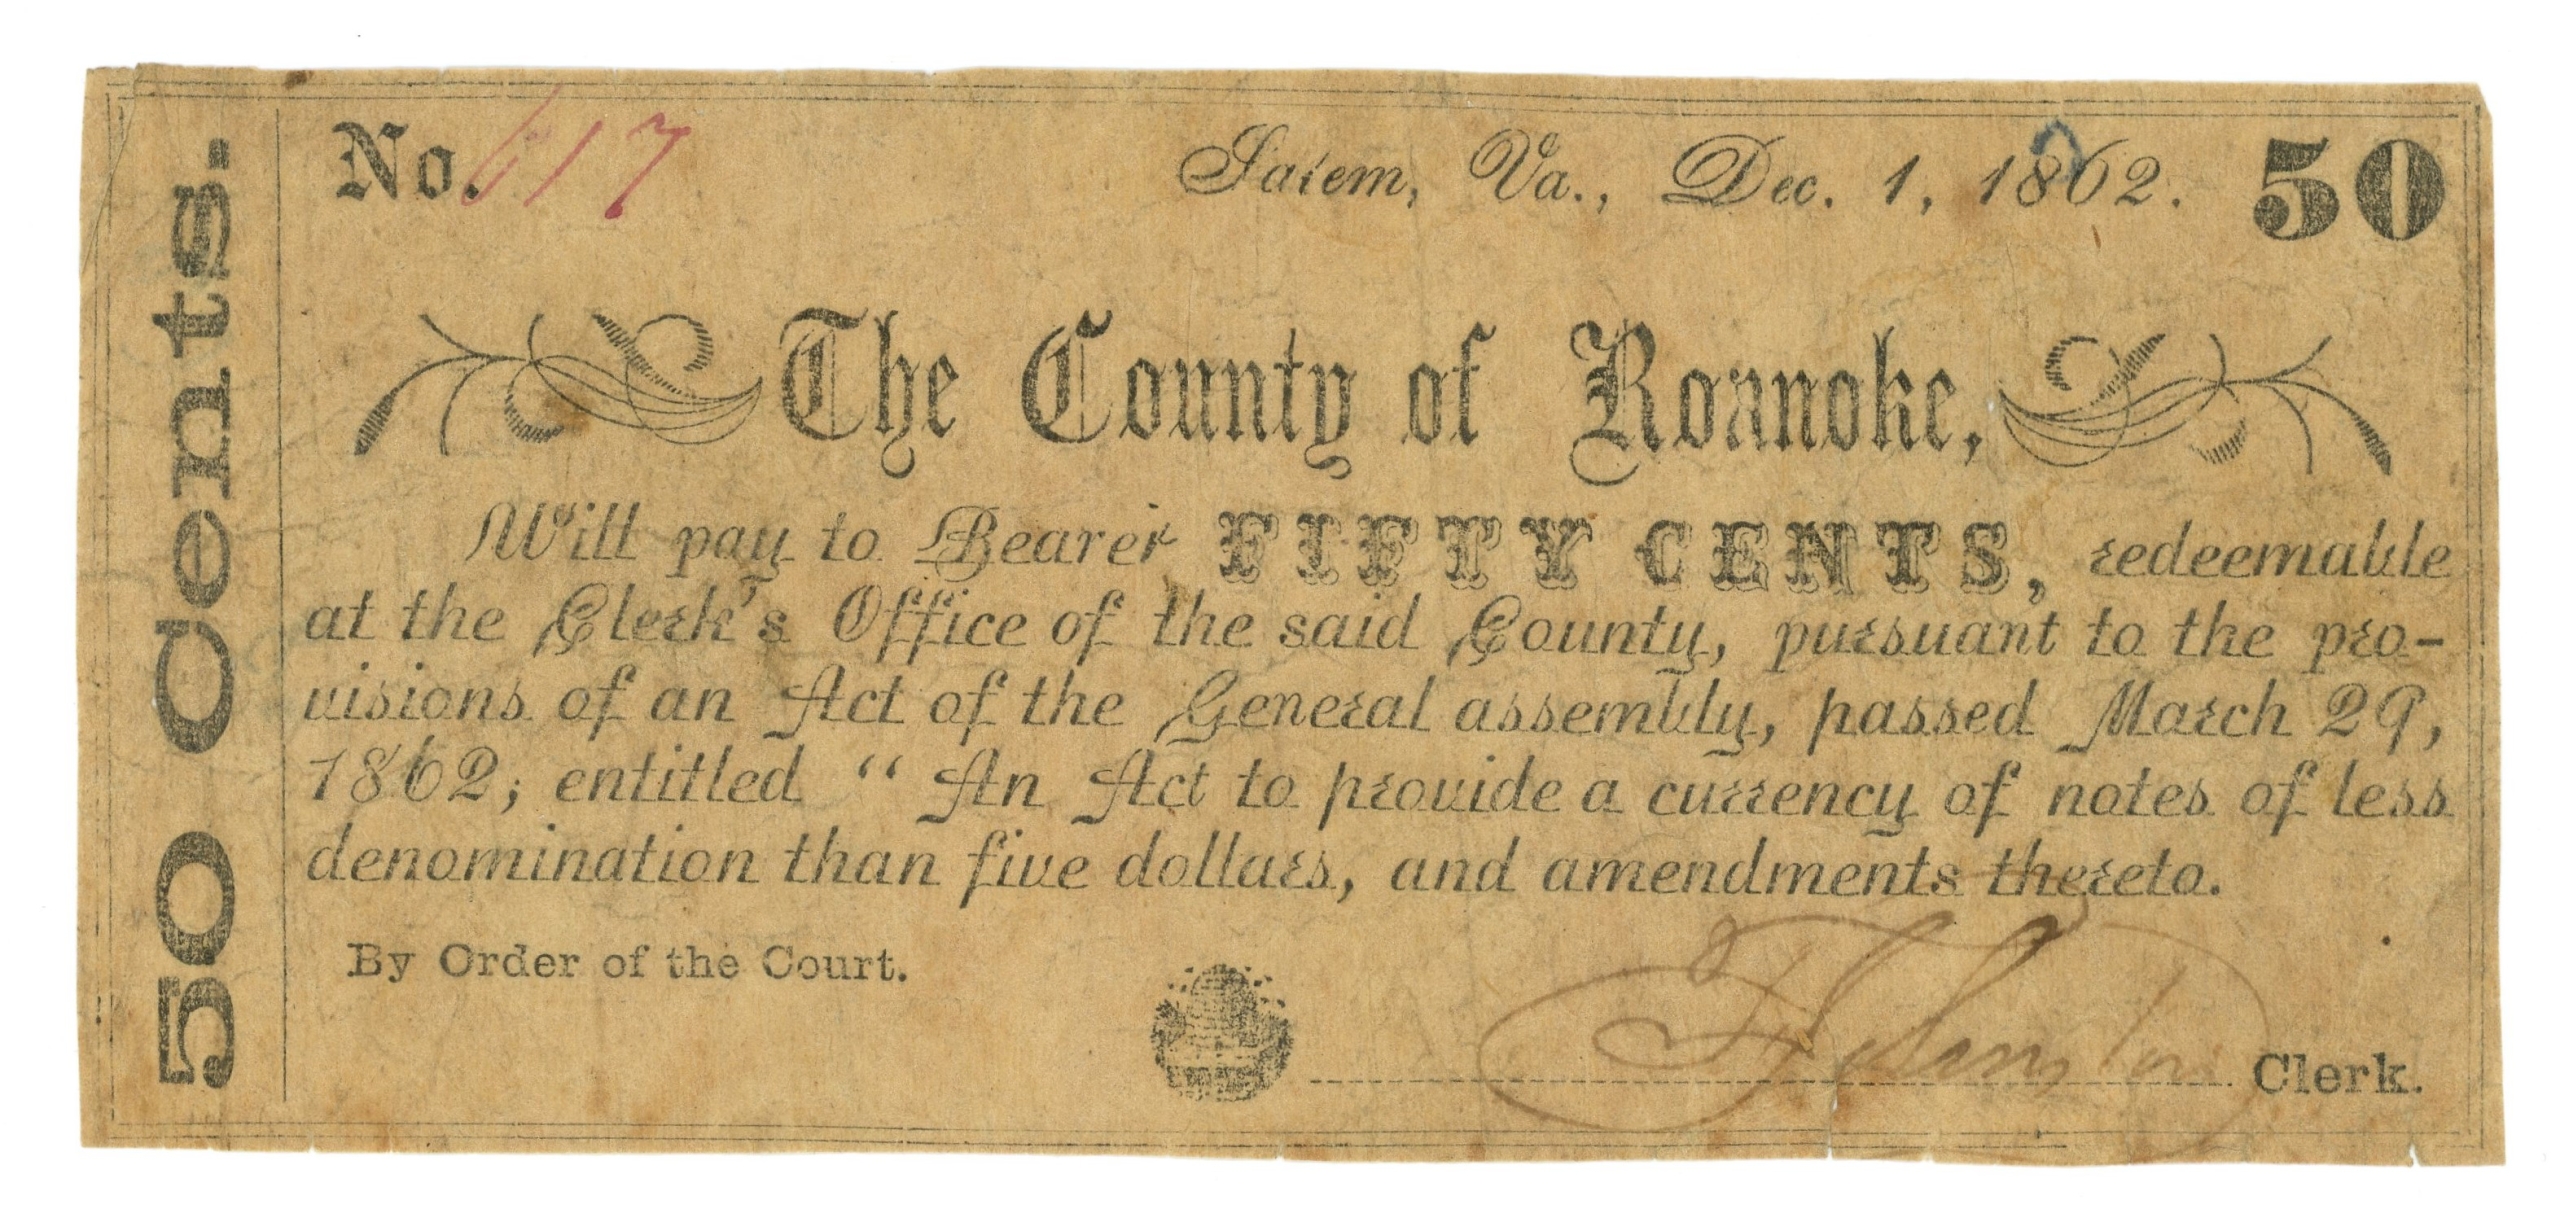 50 Cents.
No. 617
Salem, Va., Dec. 1, 1862. 50
The County of Roanoke,
Will pay to Bearer FIFTY CENTS, redeemable
at the Clerk's Office of the said County, pursuant to the pro-
visions of an Act of the General assembly, passed March 29,
1862; entitled " An Act to provide a currency of notes of less
denomination than five dollars, and amendments thereto.
By Order of the Court.
Clerk.